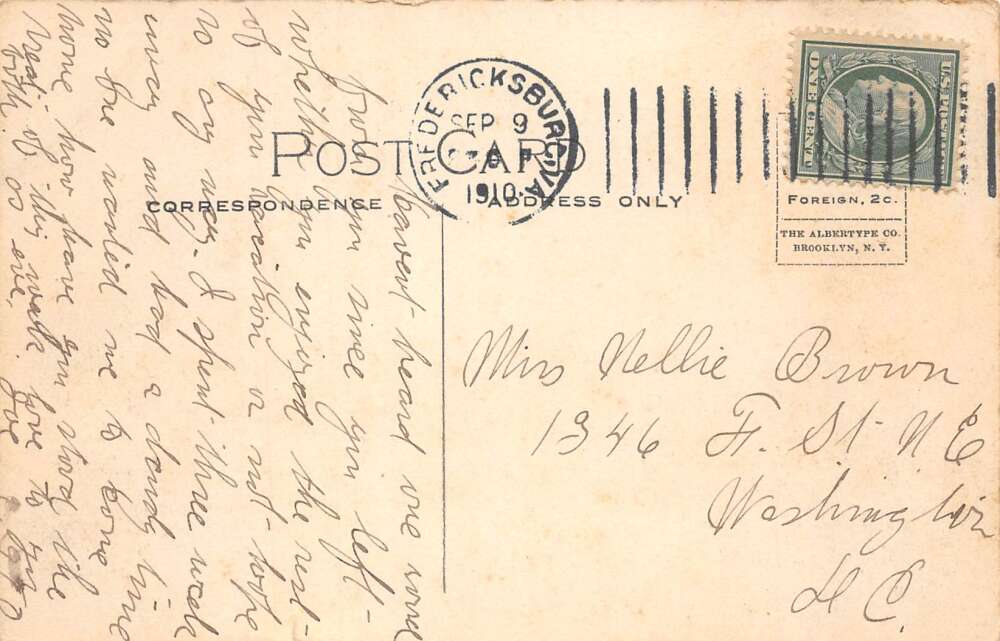 POST CARD
CORRESPONDENCE
ADDRESS ONLY
FREDERICKSBURG, VA.
SEP 9
1910
U.S. POSTAGE
ONE CENT
FOREIGN, 2C.
THE ALBERTYPE CO.
BROOKLYN, N. Y.
Havent heard one word
from you since you left-
whether you enjoyed the rest-
of your vacation or not- hope
so any way- I spent three week
away and had a dandy time
no one wanted me to come
home, how have you stood the
heat of this week love to you
both as ever Joe
Miss Nellie Brown
1346 F. St. N E
Washington
D C.